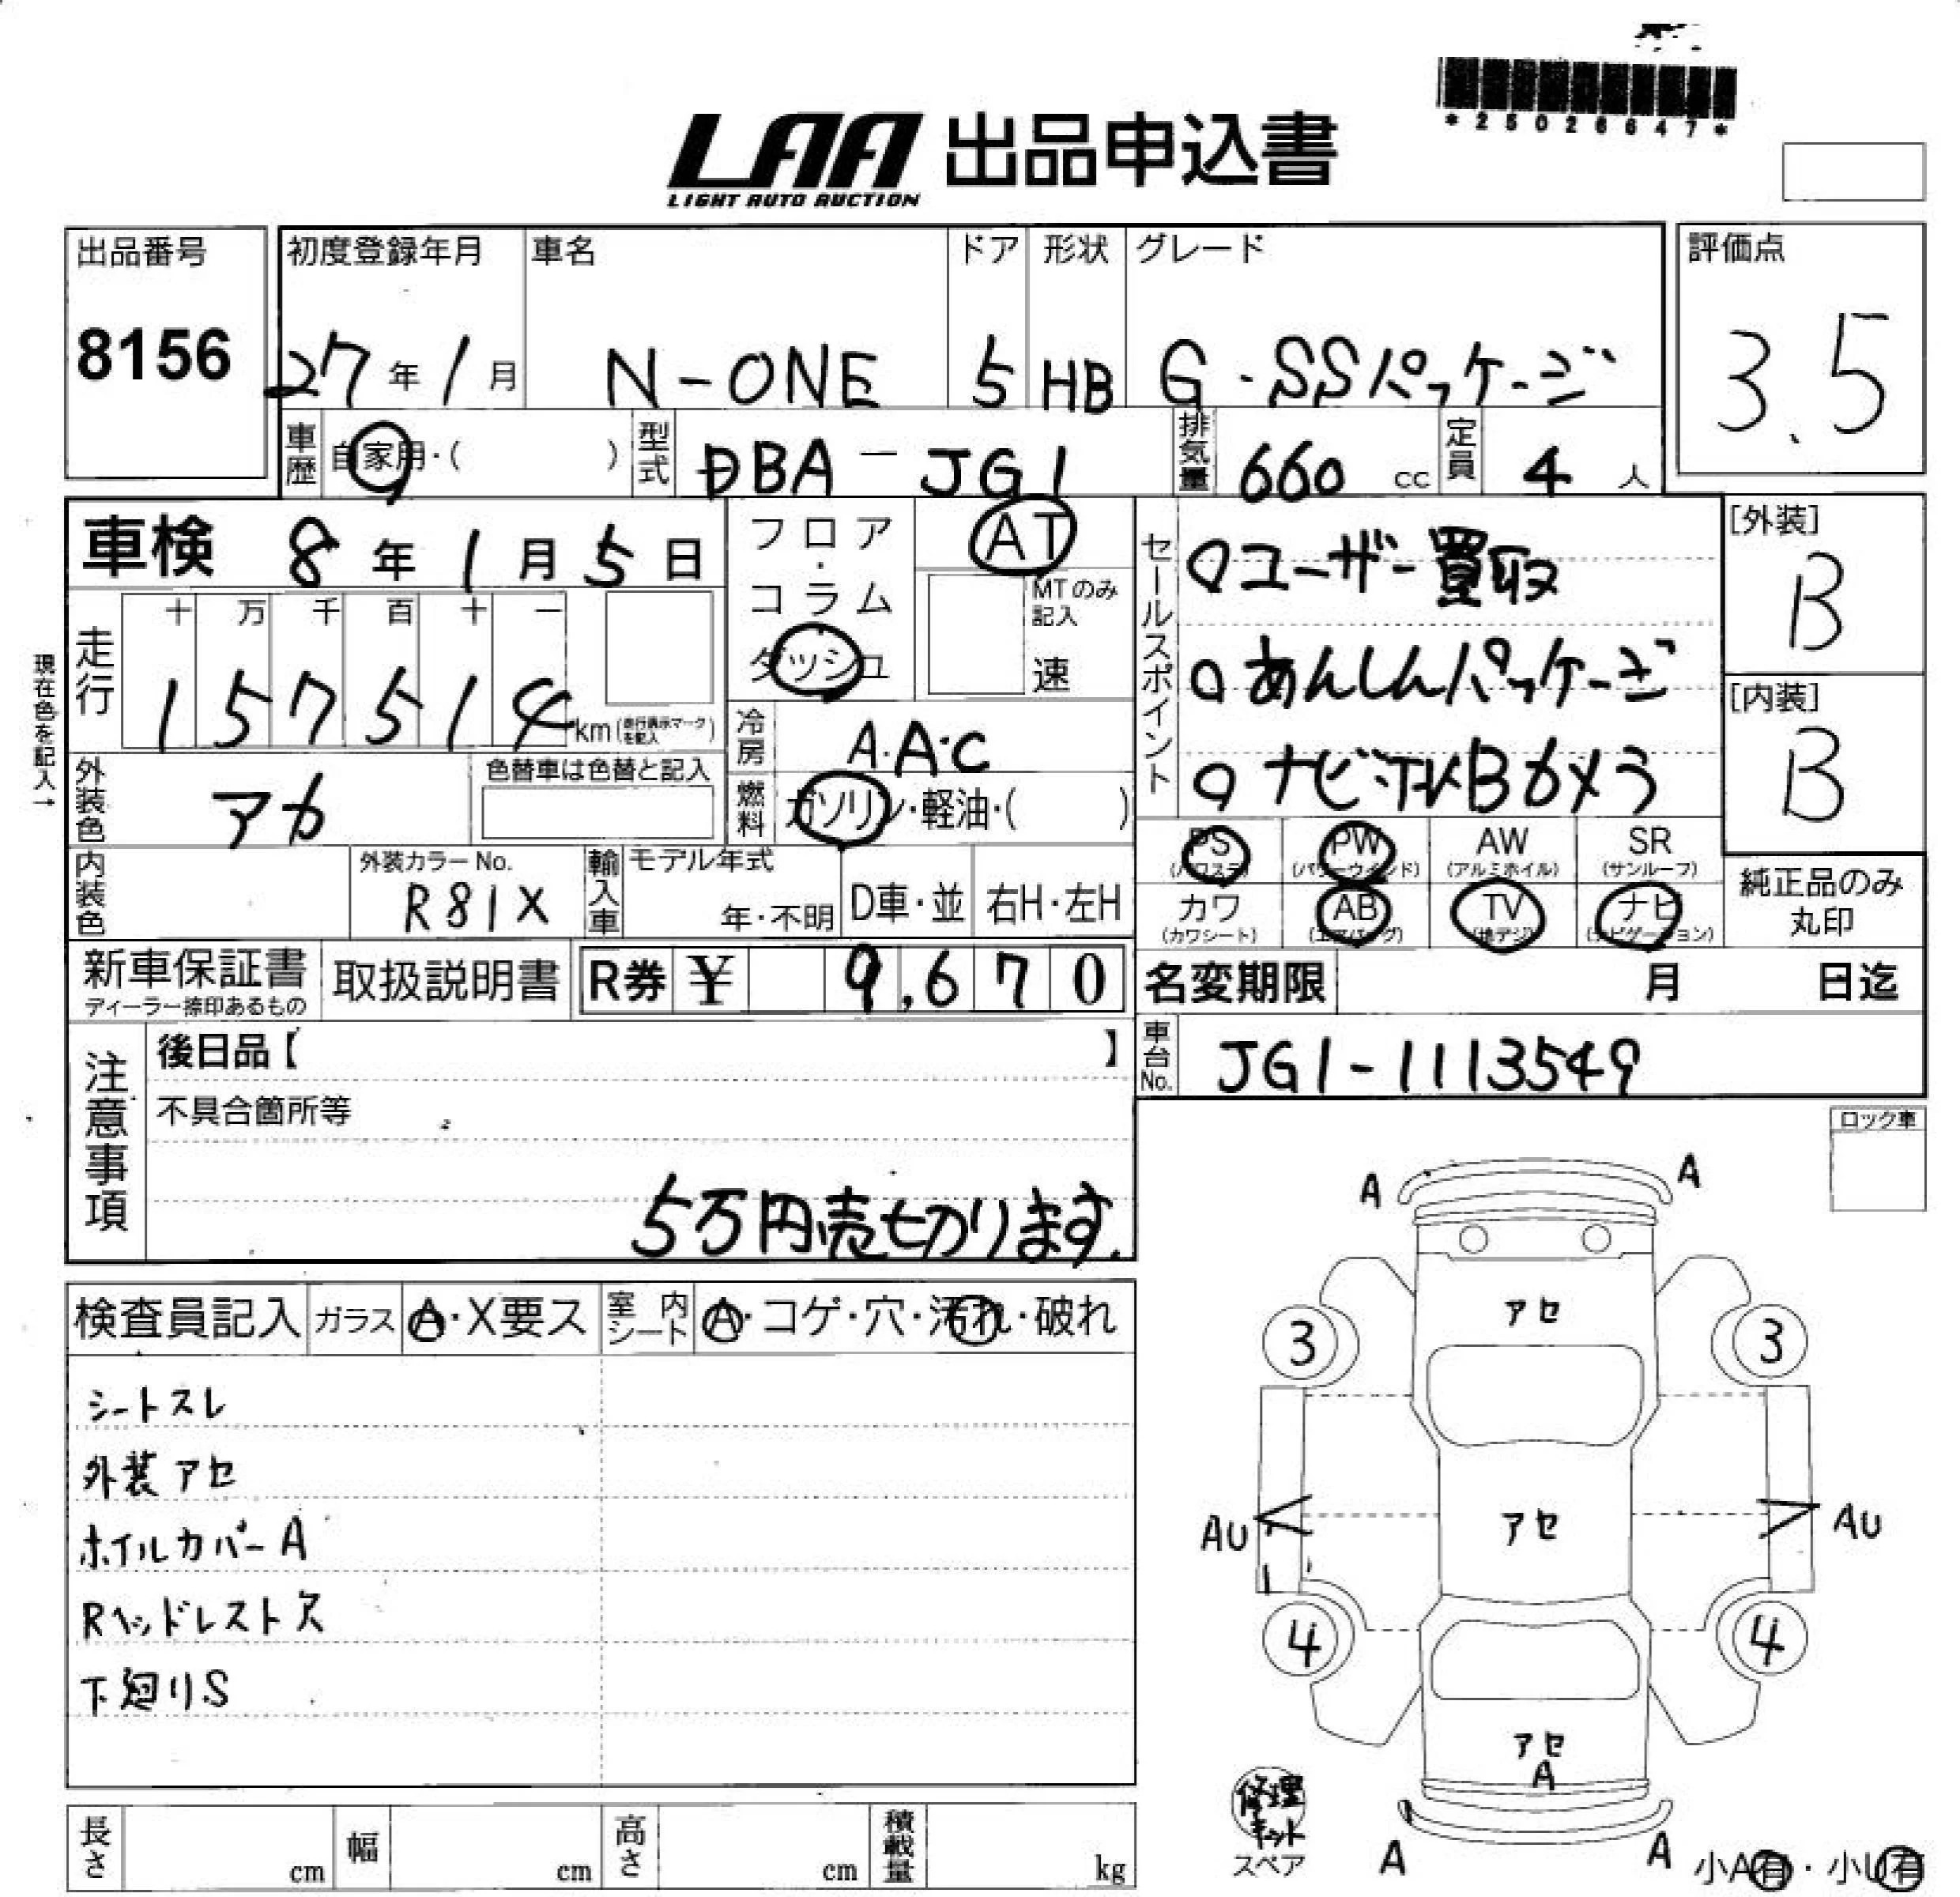 *25026647*
LAA 出品申込書
LIGHT AUTO AUCTION
出品番号
8156
初度登録年月
27年1月
車名
N-ONE
ドア
5
形状
HB
グレード
G・SSパッケージ
評価点
3.5
車歴
自家用・( )
型式
DBA-JG1
排気量
660 cc
定員
4 人
車検 8年1月5日
フロア・コラム
ダッシュ
AT
MTのみ記入
速
セールスポイント
○ユーザー買取
○あんしんパッケージ
[外装]
B
[内装]
B
現在色を記入→
走行
十 万 千 百 十 一
157514 km (走行異示マークを記入)
冷房
A.A.C
外装色
アカ
色替車は色替と記入
燃料
ガソリン・軽油・( )
PS
(パワステ)
PW
(パワーウインド)
AW
(アルミホイル)
SR
(サンルーフ)
カワ
(カワシート)
AB
(エアバッグ)
TV
(地デジ)
ナビ
(ナビゲーション)
純正品のみ丸印
内装色
外装カラーNo.
R81X
輸入車
モデル年式
年・不明
D車・並
右H・左H
新車保証書
ディーラー捺印あるもの
取扱説明書
R券 ¥ 9,670
名変期限 月 日迄
車台No.
JG1-1113549
注意事項
後日品【 】
不具合箇所等
5万円売切ります.
ロック車
検査員記入
ガラス
A・X要ス
室内シート
A・コゲ・穴・汚れ・破れ
シートスレ
外装アセ
ホイルカバーA
Rヘッドレスト欠
下廻りS
A A
アセ
3 3
AU アセ AU
4 4
アセ
A
A A
修理キット
スペア
小A有・小U有
長さ cm
幅 cm
高さ cm
積載量 kg